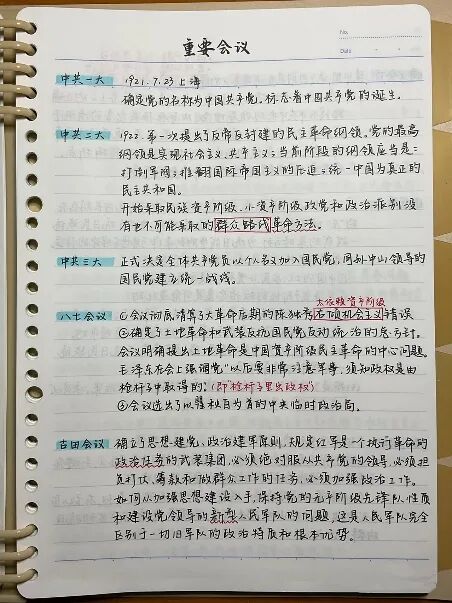 重要会议
No.
Date
中共一大 1921.7.23 上海
确定党的名称为中国共产党。标志着中国共产党的诞生。
中共二大 1922. 第一次提出了反帝反封建的民主革命纲领。党的最高
纲领是实现社会主义、共产主义；当前阶段的纲领应当是：
打倒军阀；推翻国际帝国主义的压迫；统一中国为真正的
民主共和国。
开始采取民族资产阶级、小资产阶级政党和政治派别没
有也不可能采取的群众路线革命方法。
中共三大 正式决定全体共产党员以个人名义加入国民党，同孙中山领导的
国民党建立统一战线。
太依赖资产阶级
八七会议 ①会议彻底清算了大革命后期的陈独秀右倾机会主义错误
②确定了土地革命和武装反抗国民党反动统治的总方针。
会议明确提出土地革命是中国资产阶级民主革命的中心问题。
毛泽东在会上强调党"以后要非常注意军事，须知政权是由
枪杆子中取得的。（即枪杆子里出政权）
③会议选出了以瞿秋白为首的中央临时政治局。
古田会议 确立了思想建党、政治建军原则，规定红军是一个执行革命的
政治任务的武装集团，必须绝对服从共产党的领导，必须担
负打仗、筹款和做群众工作的任务，必须加强政治工作。
如何从加强思想建设入手，保持党的无产阶级先锋队性质
和建设党领导的新型人民军队的问题，这是人民军队完全
区别于一切旧军队的政治特质和根本优势。